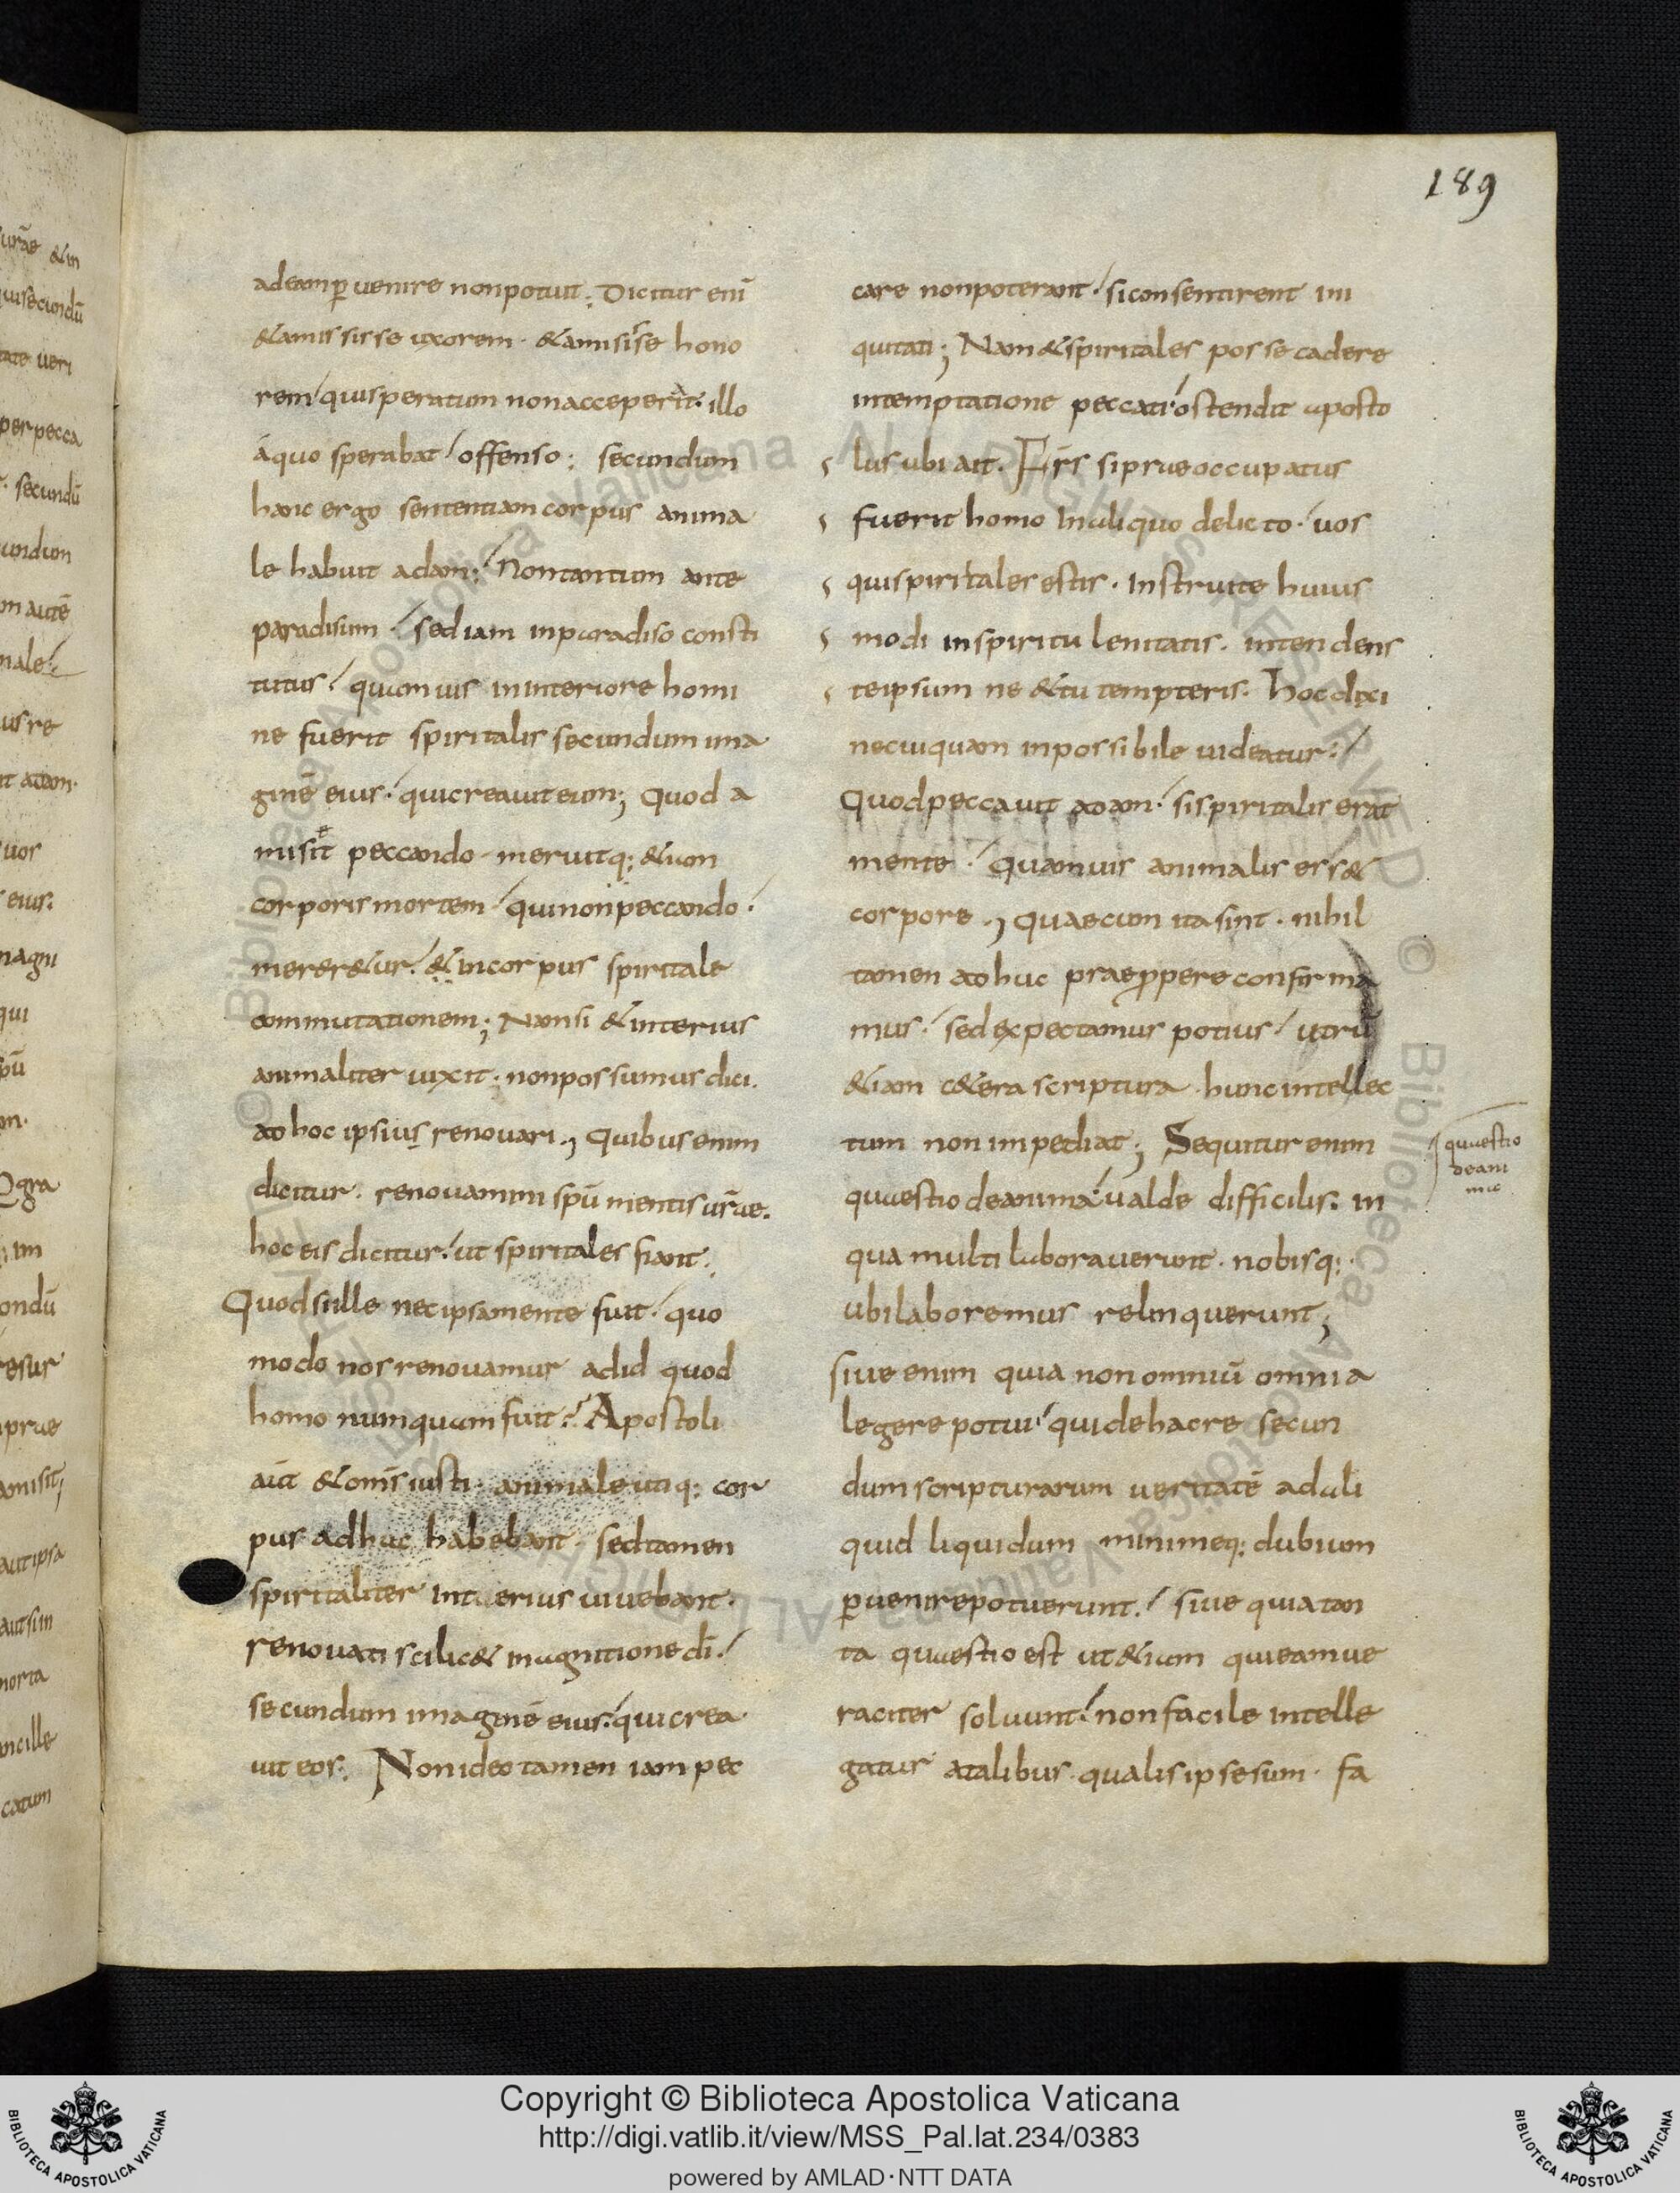 189
adeamp uenire nonpotuit; Dicitur enī
&amisisse uxorem · &amisisse hono
rem quisperatum nonacceperit· illo
áquo sperabat offenso; secundum
hanc ergo sententiam corpus anima
le habuit adam; Nontantum ante
paradisum · sed iam inparadiso consti
tutus quamuis ininteriore homi
ne fuerit spiritalis secundum ima
ginē eius· quicreauiteum; Quod a
misit peccando · meruitq: &iam
corporis mortem quinonpeccando·
merer&ur· &incorpus spiritale
commutationem; Namsi &interius
animaliter uixit · nonpossumus dici·
adhoc ipsius renouari; Quibus enim
dicitur · renouamini spū mentis uŕae·
hoc eis dicitur· ut spiritales fiant;
Quodsiille necipsamente fuit· quo
modo nos renouamur adid quod
homo numquam fuit? Apostoli
aut &omīs iusti · animale utiq: cor
pus adhuc habebant · sedtamen
spiritaliter interius uiuebant·
renouati scilic& inagnitione dī·
secundum imaginē eius· quicrea
uit eos; Nonideo tamen iam pec
care nonpoterant· siconsentirent ini
quitati; Nam&spiritales posse cadere
intemptatione peccati· ostendit aposto
lus ubi ait· Frs sipraeoccupatus
fuerit homo Inaliquo delicto· uos
quispiritales estis · Instruite huius
modi inspiritu lenitatis · intendens
teipsum ne &tu tempteris· Hocdixi
necuiquam inpossibile uideatur·
Quodpeccauit adam· sispiritalis erat
mente · Quamuis animalis ess&
corpore; Quaecum itasint · nihil
tamen adhuc praeppere confirma
mus· sedexpectamus potius utrū
&iam c&era scriptura hunc intellec
tum non impediat; Sequitur enim
quaestio deanima· ualde difficilis· in
qua multi laborauerunt · nobisq:·
ubilaboremus relinquerunt;
siue enim quia nonomniū omnia
legere potui· quidehacre secun
dumscripturarum ueritatē adali
quid liquidum minimeq: dubium
puenirepotuerunt· siue quia tan
ta quaestio est ut&iam quieamue
raciter soluunt· nonfacile intelle
gatur atalibus qualis ipsesum · fa
quaestio
deani
mae
Copyright © Biblioteca Apostolica Vaticana
http://digi.vatlib.it/view/MSS_Pal.lat.234/0383
powered by AMLAD·NTT DATA
BIBLIOTECA APOSTOLICA VATICANA
BIBLIOTECA APOSTOLICA VATICANA